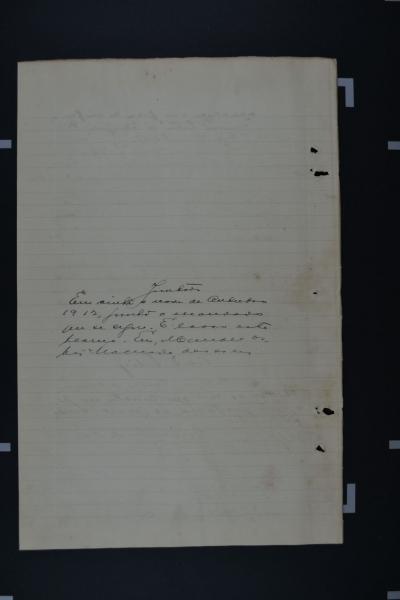 Juntada
Em vinte e nove de Outubro
1912, junto o mandado
que se segue. E lavro este
termo. Eu, Manoel